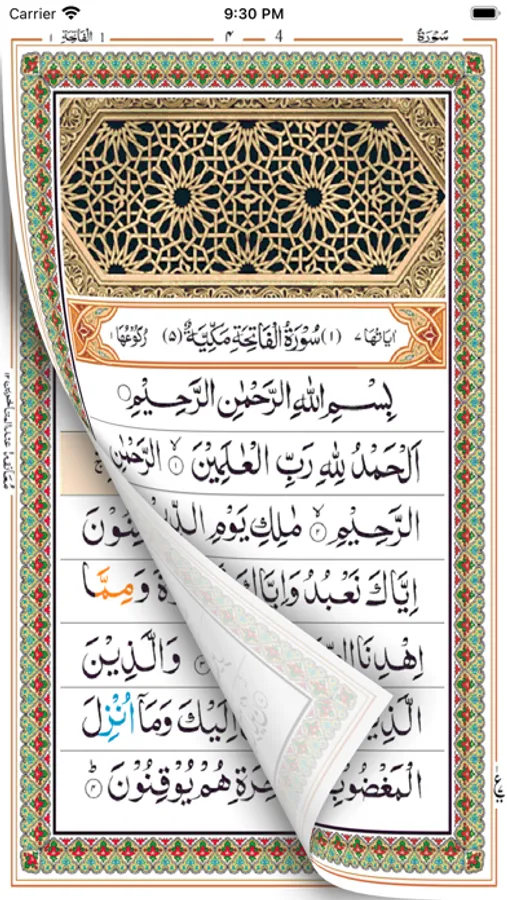 Carrier 9:30 PM
سُوْرَةُ 4 ۴ اَلْفَاتِحَةِ ١
اٰيَاتُهَا ٧ (١) سُوْرَةُ الْفَاتِحَةِ مَكِّيَّةٌ (٥) رُكُوْعُهَا ١
بِسْمِ اللهِ الرَّحْمٰنِ الرَّحِيْمِ
اَلْحَمْدُ لِلهِ رَبِّ الْعٰلَمِيْنَ ١ الرَّحْمٰنِ
الرَّحِيْمِ ٢ مٰلِكِ يَوْمِ الدِّ نُوْنَ
اِيَّاكَ نَعْبُدُ وَاِيَّاكَ ةَ وَمِمَّا
اِهْدِنَا وَالَّذِيْنَ
الَّذِيْ اِلَيْكَ وَمَآ اُنْزِلَ
الْمَغْضُوْبِ خِرَةِ هُمْ يُوْقِنُوْنَ ۴